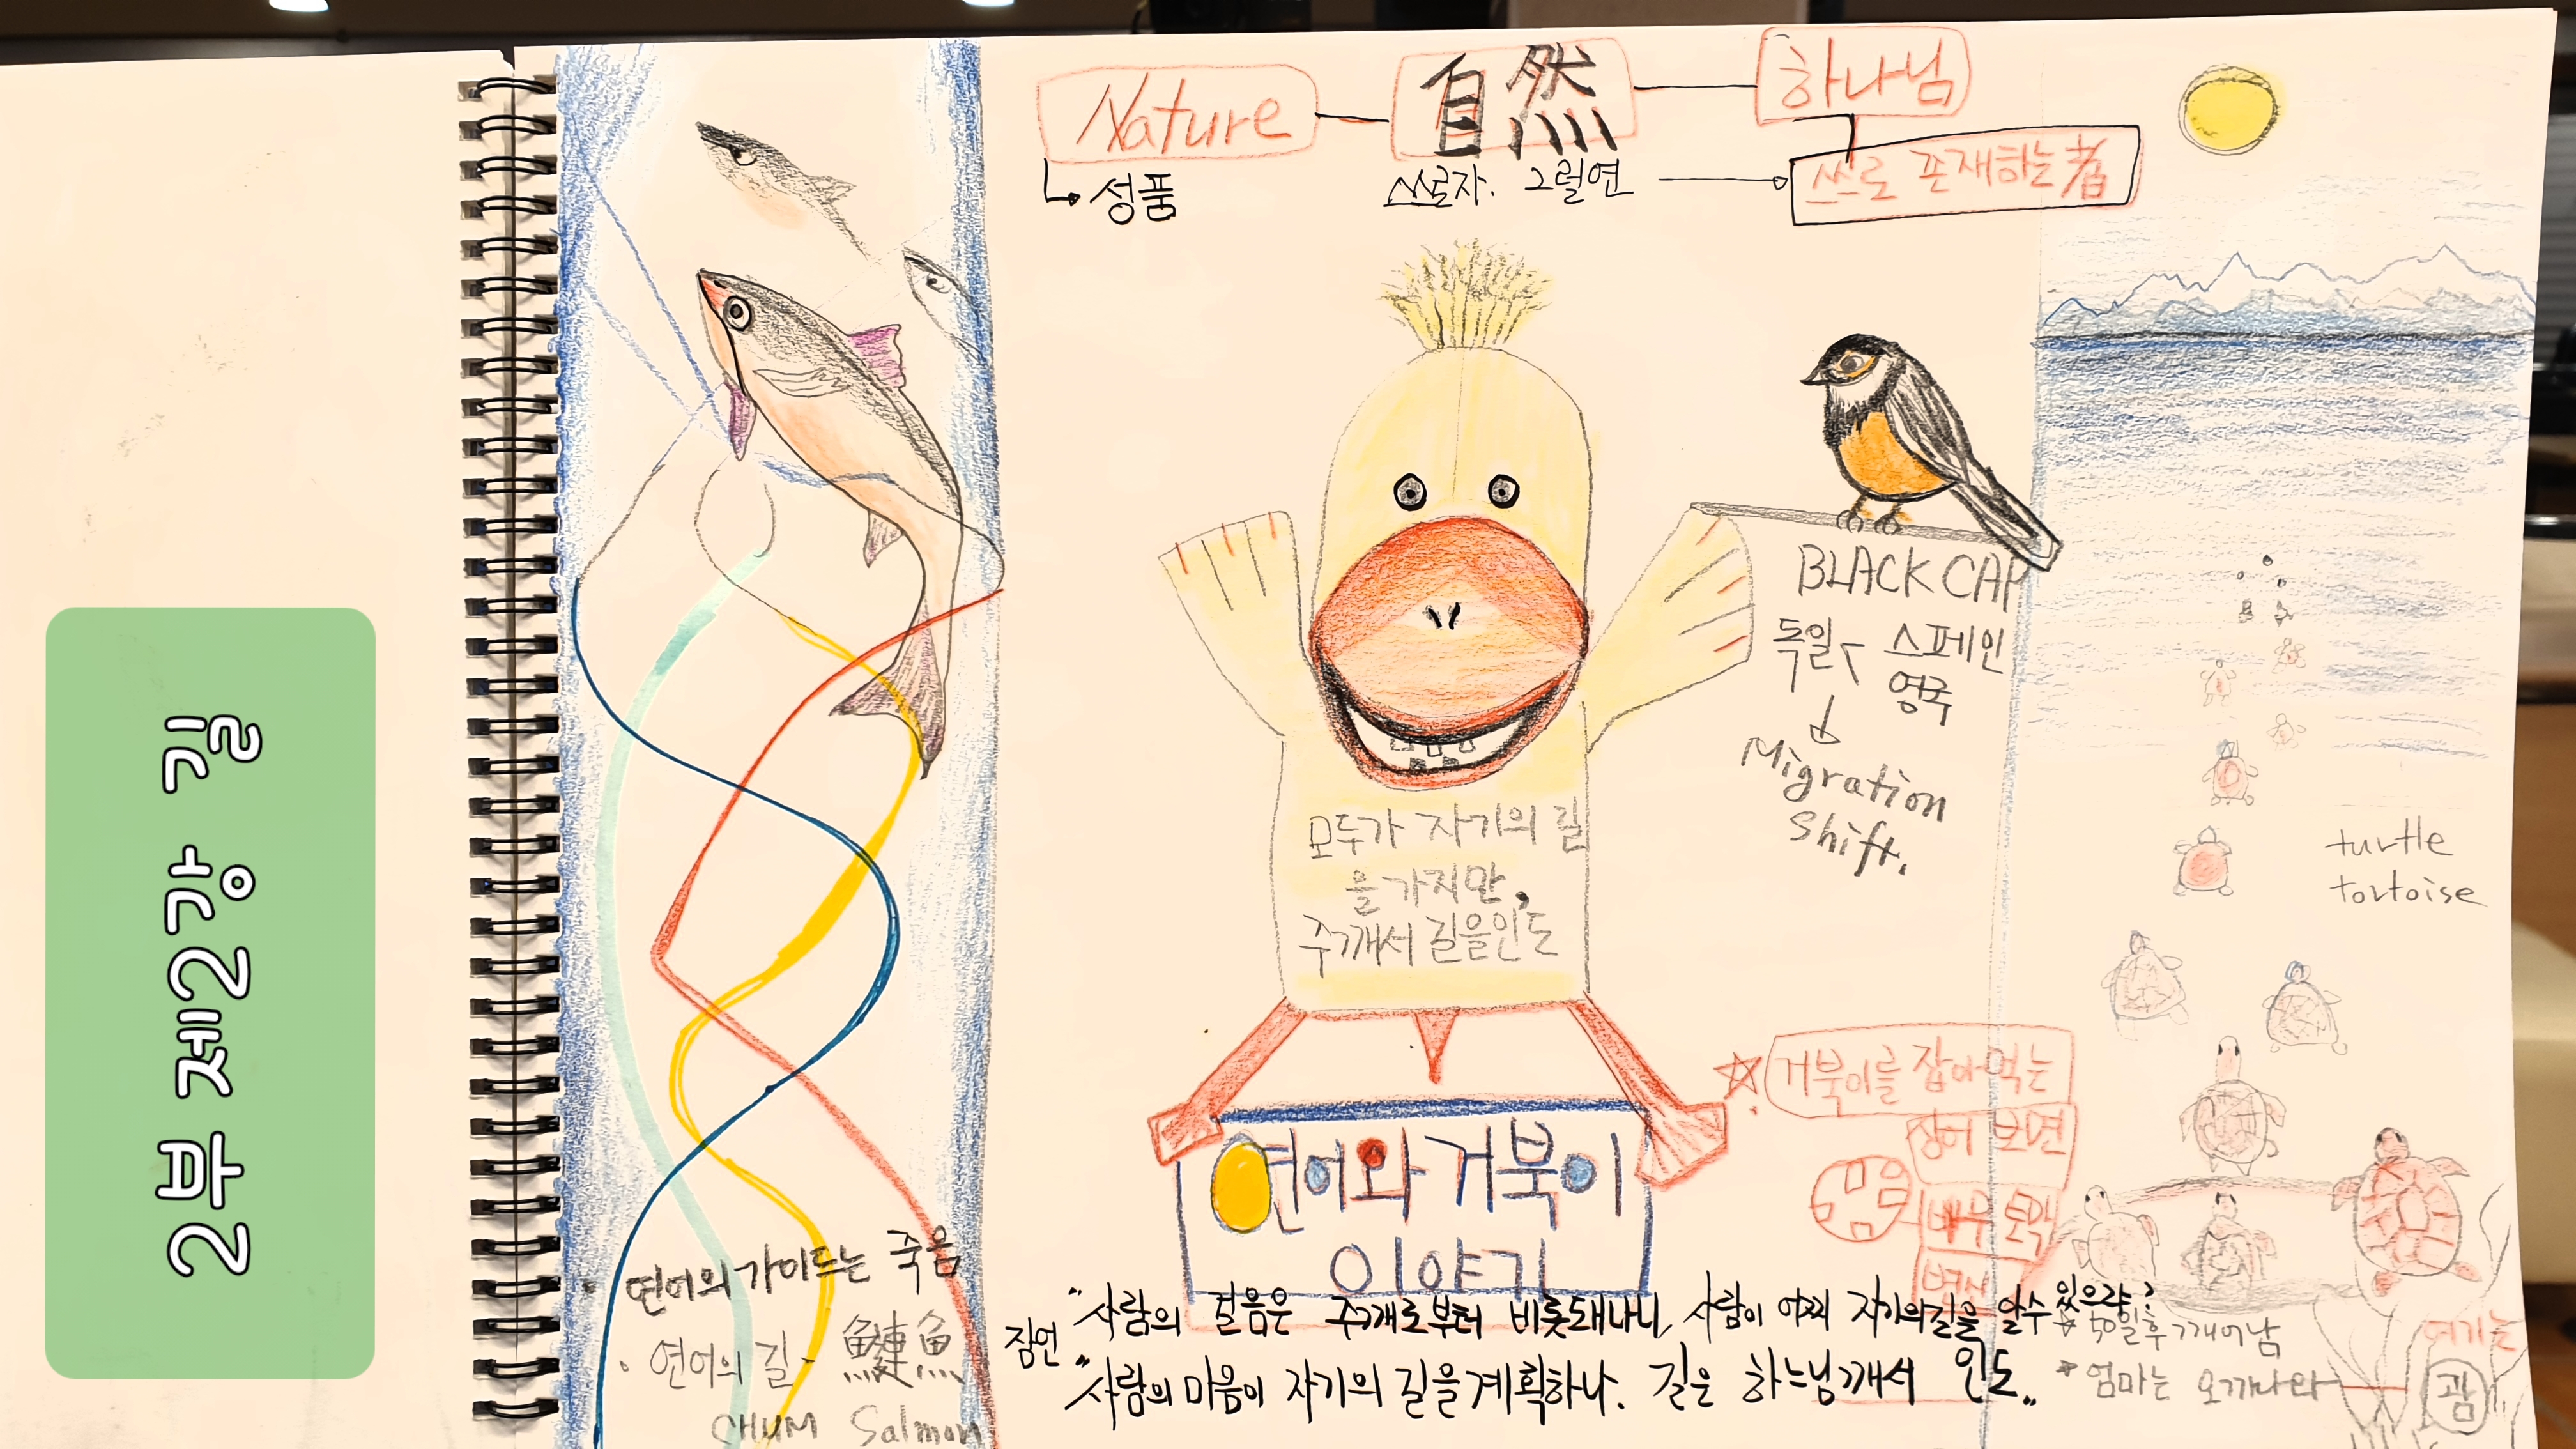 2부 제2강 길
Nature
自然
하나님
성품
쓰로자. 그럴연
쓰로 존재하는 者
BLACK CAP
독일 스페인
영국
Migration
Shift.
모두가 자기의 길
을 가지만,
주께서 길을 인도
turtle
tortoise
거북이를 잡아먹는
장어 보면
배우 토막
변신
연어와 거북이
이야기
· 연어의 가이드는 죽음
· 연어의 길 - 鰱魚
CHUM Salmon
잠언
"사람의 걸음은 주께로부터 비롯돼나니 사람이 어찌 자기의 길을 알수 있으랴?
"사람의 마음이 자기의 길을 계획하나. 길은 하느님께서 인도..
50일후 깨어남
* 엄마는 오끼나와
여기는
괌